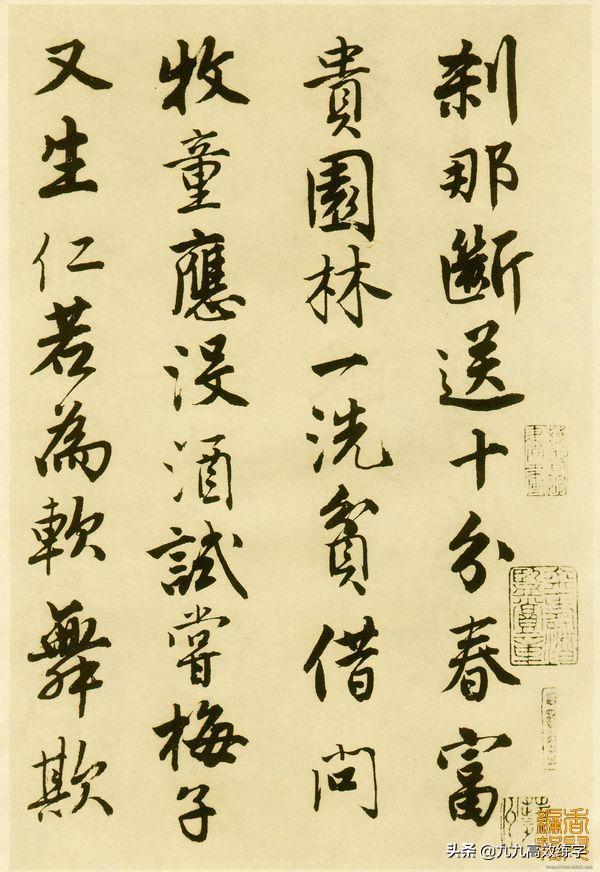 刹那斷送十分春富
貴園林一洗貧借問
牧童應沒酒試嘗梅子
又生仁若為軟舞欺
头条 @九九高效练字